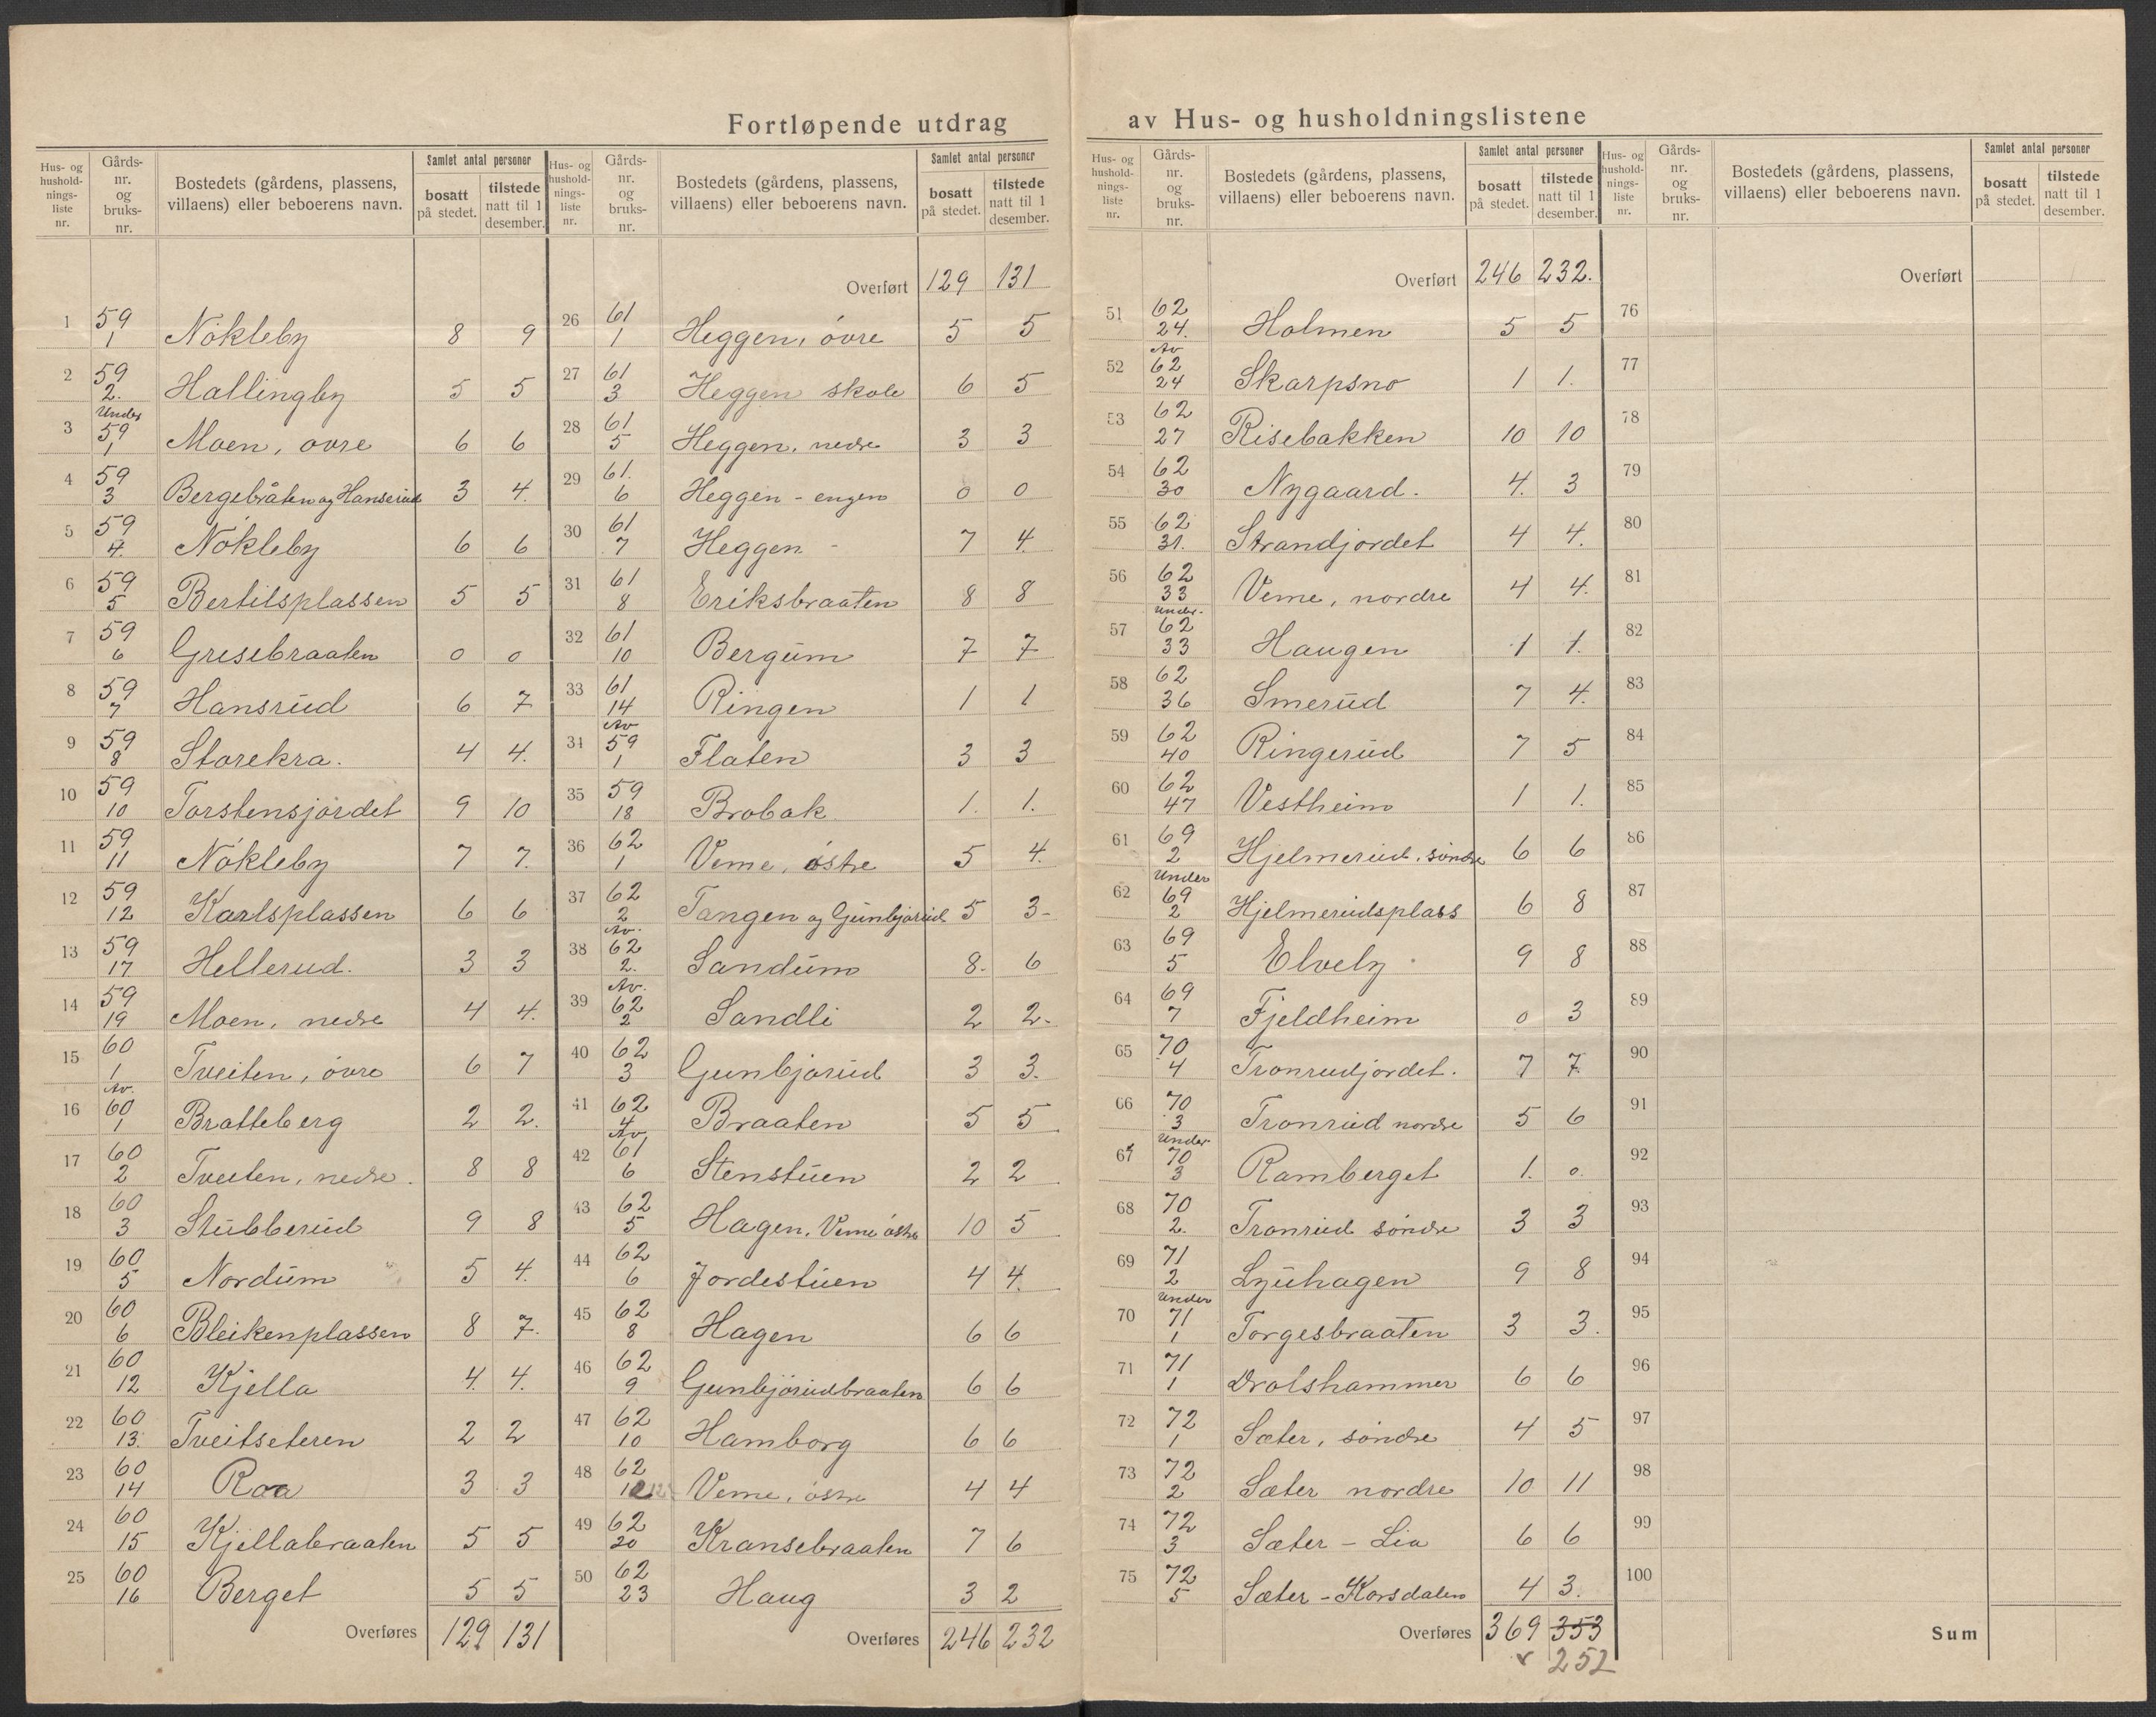 Fortløpende utdrag av Hus- og husholdningslistene
Hus- og husholdningsliste nr. | Gårdsnr. og bruksnr. | Bostedets (gårdens, plassens, villaens) eller beboerens navn. | Samlet antal personer bosatt på stedet. | tilstede natt til 1 desember.
1 59/1 Nökleby 8 9
2 59/2. Hallingby 5 5
3 Under 59/1 Moen, övre 6 6
4 59/3 Bergebråten og Hanserud 3 4.
5 59/4. Nökleby 6 6
6 59/5 Bertilsplassen 5 5
7 59/6 Gresebraaten 0 0
8 59/7 Hansrud 6 7
9 59/8 Storekra. 4 4.
10 59/10 Torstensjordet 9 10
11 59/11 Nökleby 7 7.
12 59/12 Karlsplassen 6 6
13 59/17 Hellerud. 3 3
14 59/19 Moen, nedre 4 4.
15 60/1 Tveiten, övre 6 7
16 Av. 60/1 Bratteberg 2 2.
17 60/2 Tveiten, nedre. 8 8
18 60/3 Stubberud 9 8
19 60/5 Nordum 5 4.
20 60/6 Bleikenplassen 8 7.
21 60/12 Kjella 4. 4.
22 60/13. Tveitseteren 2 2
23 60/14 Raa 3 3
24 60/15 Kjellabraaten 5 5
25 60/16 Berget 5 5
Overføres 129 131
Hus- og husholdningsliste nr. | Gårdsnr. og bruksnr. | Bostedets (gårdens, plassens, villaens) eller beboerens navn. | Samlet antal personer bosatt på stedet. | tilstede natt til 1 desember.
Overført 129 131
26 61/1 Heggen, övre 5 5
27 61/3 Heggen skole 6 5
28 61/5 Heggen, nedre 3 3
29 61./6 Heggen - engen 0 0
30 61/7 Heggen - 7 4.
31 61/8 Eriksbraaten 8 8
32 61/10 Bergum 7 7
33 61/14 Ringen 1 1
34 Av 59/1 Flaten 3 3
35 59/18 Brobak 1. 1.
36 62/1 Veme, östre 5 4.
37 62/2 Tangen og Gunbjörud 5 3-
38 Av. 62/2. Sandum 8. 6
39 Av. 62/2 Sandli 2 2-
40 62/3 Gunbjörud 3 3.
41 62/4 Braaten 5 5
42 Av 61/6 Stenstuen 2 2
43 62/5 Hagen, Veme östre 10 5
44 62/6 Jordestuen 4 4.
45 62/8 Hagen 6 6
46 62/9 Gunbjörudbraaten 6 6
47 62/10 Hamborg 6 6
48 62/12 Veme, östre 4 4
49 62/20 Kransebraaten 7 6
50 62/23 Haug 3 2
Overføres 246 232
Hus- og husholdningsliste nr. | Gårdsnr. og bruksnr. | Bostedets (gårdens, plassens, villaens) eller beboerens navn. | Samlet antal personer bosatt på stedet. | tilstede natt til 1 desember.
Overført 246 232.
51 62/24. Holmen 5 5
52 Av 62/24 Skarpsno 1 1.
53 62/27 Risebakken 10 10
54 62/30 Nygaard. 4. 3
55 62/31. Strandjordet 4 4.
56 62/33 Veme, nordre 4 4.
57 Under. 62/33 Haugen 1 1.
58 62/36 Smerud 7 4.
59 62/40 Ringerud 7 5
60 62/47 Vestheim 1 1.
61 69/2 Hjelmerud, söndre 6 6
62 Under 69/2 Hjelmerudsplass 6 8
63 69/5 Elvely 9 8
64 69/7 Fjeldheim 0 3
65 70/4 Tronrudjordet. 7 7.
66 70/3 Tronrud nordre 5 6
67 Under 70/3 Ramberget 1. 0.
68 70/2. Tronrud söndre 3 3
69 71/2 Lyuhagen 9 8
70 Under 71/1 Torgesbraaten 3 3.
71 71/1 Drolshammer 6 6
72 72/1 Sæter, söndre 4 5
73 72/2 Sæter nordre 10 11
74 72/3 Sæter - Lia 6 6
75 72/5 Sæter - Korsdalen 4 3.
Overføres 369 353
252
Hus- og husholdningsliste nr. | Gårdsnr. og bruksnr. | Bostedets (gårdens, plassens, villaens) eller beboerens navn. | Samlet antal personer bosatt på stedet. | tilstede natt til 1 desember.
Overført
76
77
78
79
80
81
82
83
84
85
86
87
88
89
90
91
92
93
94
95
96
97
98
99
100
Sum